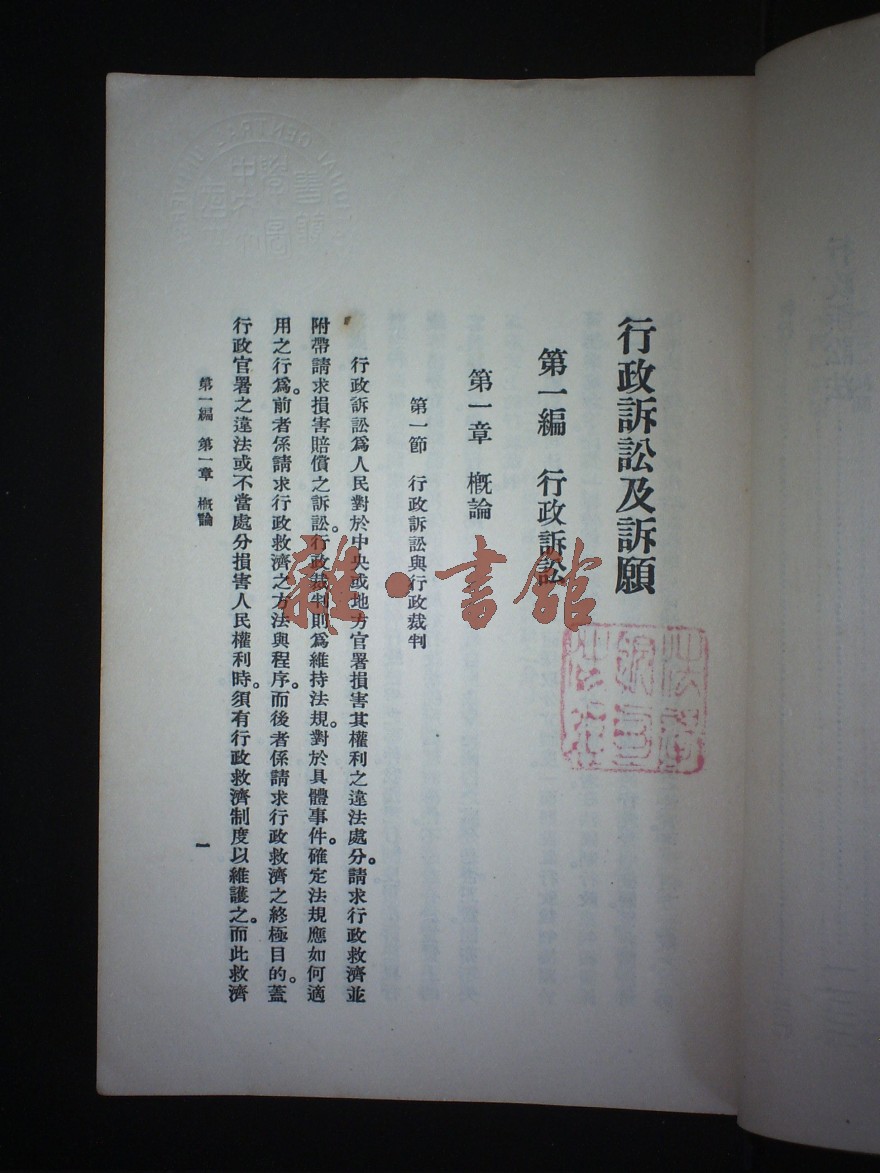 行政訴訟及訴願
第一編　行政訴訟
第一章　概論
第一節　行政訴訟與行政裁判
行政訴訟爲人民對於中央或地方官署損害其權利之違法處分。請求行政救濟並
附帶請求損害賠償之訴訟。行政裁判則爲維持法規。對於具體事件。確定法規應如何適
用之行爲。前者係請求行政救濟之方法與程序。而後者係請求行政救濟之終極目的。蓋
行政官署之違法或不當處分損害人民權利時。須有行政救濟制度以維護之。而此救濟
第一編　第一章　概論
一
雜·書館